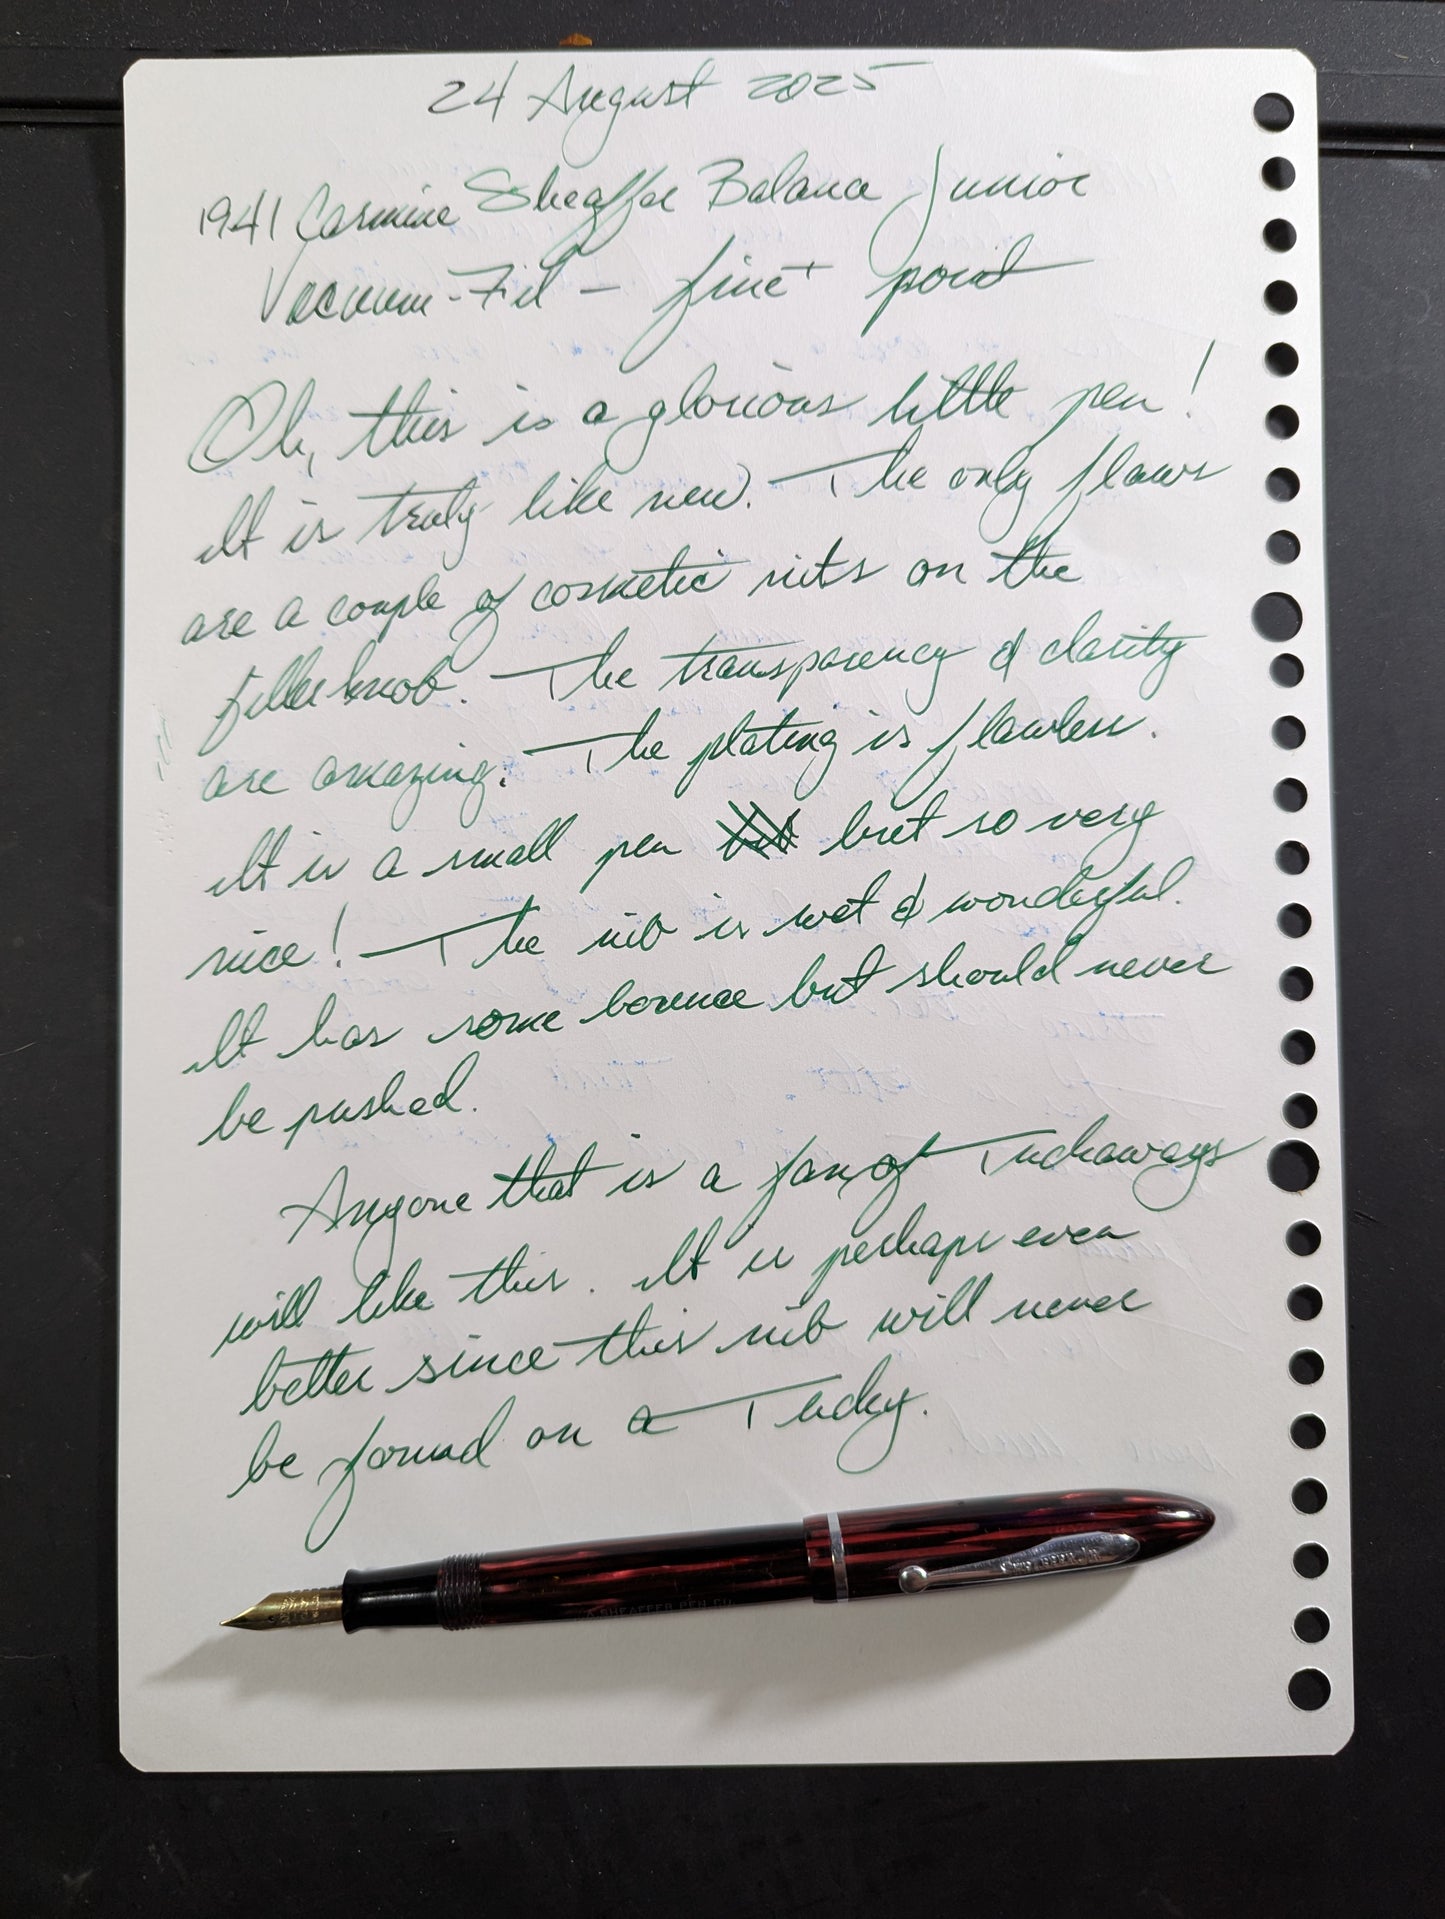 24 August 2025
1941 Carmine Sheaffer Balance Junior
Vacuum-Fil - fine point
Oh, this is a glorious little pen!
It is truly like new. The only flaws
are a couple of cosmetic nits on the
filler knob. The transparency & clarity
are amazing. The plating is flawless.
It is a small pen but so very
nice! The nib is wet & wonderful.
It has some bounce but should never
be pushed.
Anyone that is a fan of Tuckaways
will like this. It is perhaps even
better since this nib will never
be found on a Tucky.
SHEAFFER'S
W.A. SHEAFFER PEN CO.